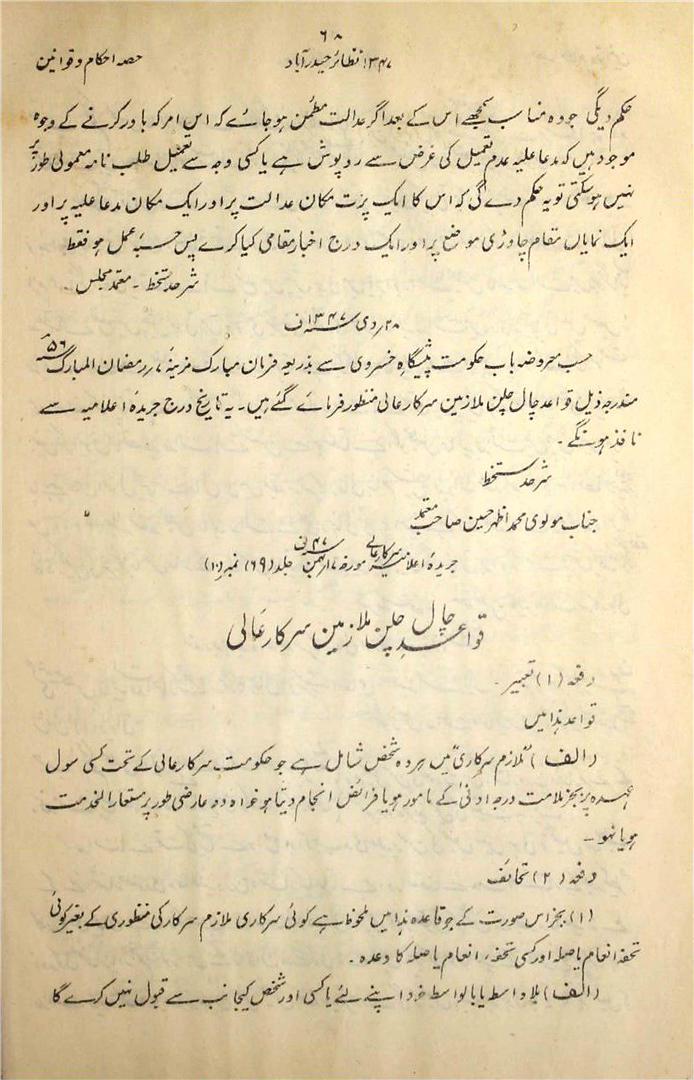 ۶۸
۱۳۴۷ نظائر حیدرآباد
حصہ احکام و قوانین
حکم دیگی جو وہ مناسب سمجھے اس کے بعد اگر عدالت مطمئن ہو جائے کہ اس امر کہ باور کرنے کے وجوہ
موجود ہیں کہ مدعا علیہ عدم تعمیل کی غرض سے روپوش ہے یا کسی وجہ سے تعمیل طلب نامہ معمولی طور پر
نہیں ہو سکتی تو یہ حکم دے گی کہ اس کا ایک پرت مکان عدالت پر اور ایک مکان مدعا علیہ پر اور
ایک نمایاں مقام چاوڑی موضع پر اور ایک درج اخبار مقامی کیا کرے پس حسبہٗ عمل ہو فقط
شرحد ستخط ۔ معتمد مجلس ۔
۲۸ ردی ۱۳۴۷ ف
حسب معروضہ باب حکومت پیشگاہ خسروی سے بذریعہ فرمان مبارک مزینہ ۷ ررمضان المبارک ۵۶
مندرجہ ذیل قواعد چال چلن ملازمین سرکار عالی منظور فرمائے گئے ہیں۔ یہ تاریخ درج جریدۂ اعلامیہ سے
نافذ ہونگے ۔
شرحد ستخط
جناب مولوی محمد اظہر حسین صاحب معتمد
جریدہ اعلامیہ سرکار عالی مورخہ ۱۷ بہمن ۴۷ ف جلد (۶۹) نمبر (۱۰)
قواعد چال چلن ملازمین سرکار عالی
دفعہ (۱) تعبیر ۔
قواعد ہذا میں
(الف) "ملازم سرکاری" میں ہر وہ شخص شامل ہے جو حکومت سرکار عالی کے تحت کسی سول
عہدہ پر بجز ملامت درجہ ادنیٰ کے مامور ہو یا فرائض انجام دیتا ہو خواہ وہ عارضی طور پر مستعار الخدمت
ہو یا نہو ۔
دفعہ (۲) تحائف
(۱) بجز اس صورت کے جو قاعدہ ہذا میں ملحوظ ہے کوئی سرکاری ملازم سرکار کی منظوری کے بغیر کوئی
تحفہ انعام یا صلہ اور کسی تحفہ، انعام یا صلہ کا وعدہ ۔
(الف) بلا واسطہ یا بالواسطہ خود اپنے لئے یا کسی اور شخص کیجانب سے قبول نہیں کرے گا